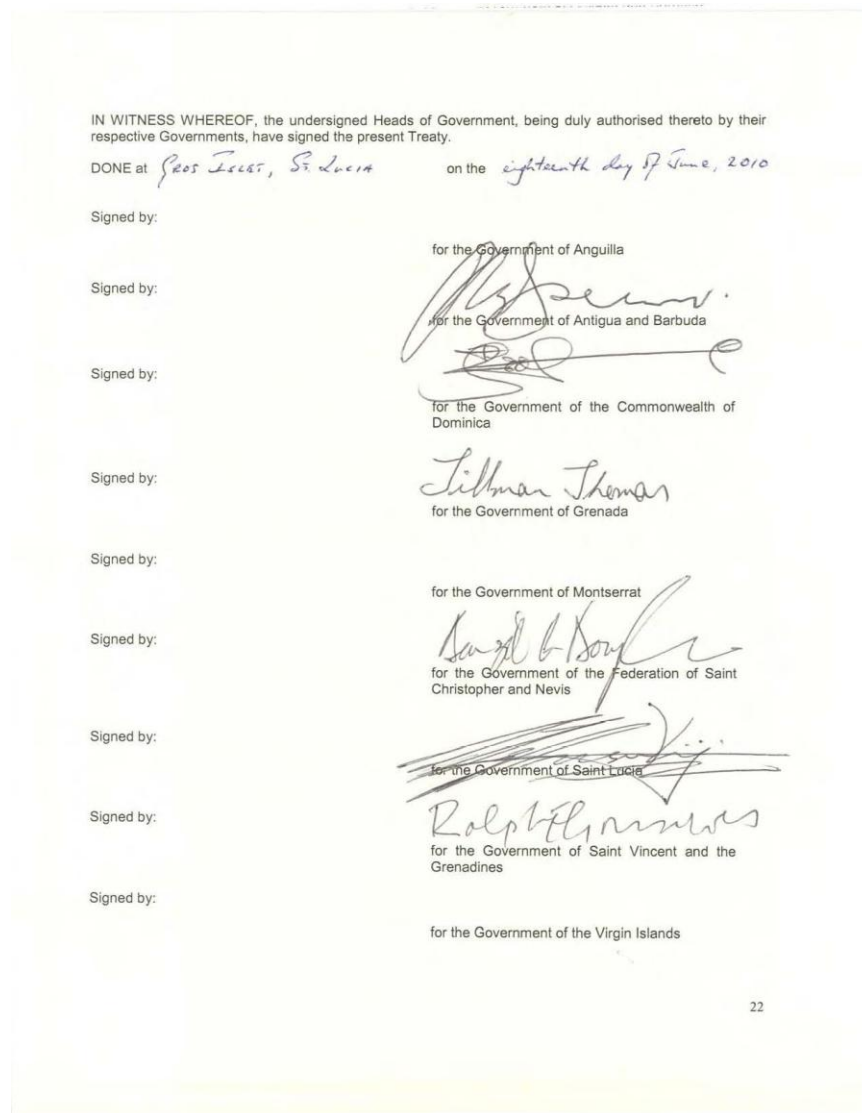 IN WITNESS WHEREOF, the undersigned Heads of Government, being duly authorised thereto by their
respective Governments, have signed the present Treaty.
DONE at Gros Islet, St. Lucia on the eighteenth day of June, 2010
Signed by:
for the Government of Anguilla
Signed by:
for the Government of Antigua and Barbuda
Signed by:
for the Government of the Commonwealth of
Dominica
Signed by:
Tillman Thomas
for the Government of Grenada
Signed by:
for the Government of Montserrat
Signed by:
for the Government of the Federation of Saint
Christopher and Nevis
Signed by:
for the Government of Saint Lucia
Signed by:
Ralph E Gonsalves
for the Government of Saint Vincent and the
Grenadines
Signed by:
for the Government of the Virgin Islands
22